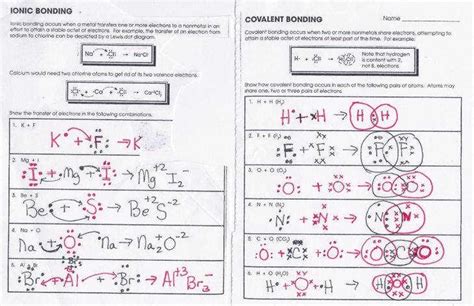 IONIC BONDING
Ionic bonding occurs when a metal transfers one or more electrons to a nonmetal in an
effort to attain a stable octet of electrons. For example, the transfer of an electron from
sodium to chlorine can be depicted by a Lewis dot diagram.
Calcium would need two chlorine atoms to get rid of its two valence electrons.
Show the transfer of electrons in the following combinations.
1. K + F
K + F → K
2. Mg + I
I + Mg + I → Mg+2 I2-
3. Be + S
Be + S → Be+2 S-2
4. Na + O
Na + O → Na2+O-2
5. Al + Br
Br + Al + Br → Al+3 Br3-
COVALENT BONDING
Name
Covalent bonding occurs when two or more nonmetals share electrons, attempting to
attain a stable octet of electrons at least part of the time. For example:
Note that hydrogen
is content with 2,
not 8, electrons.
Show how covalent bonding occurs in each of the following pairs of atoms. Atoms may
share one, two or three pairs of electrons.
1. H + H (H2)
H + H → H H
2. F + F (F2)
F + F → F F
3. O + O (O2)
O + O → O O
4. N + N (N2)
N + N → N N
5. C + O (CO2)
O + C + O → O C O
6. H + O (H2O)
H + O + H → H O H